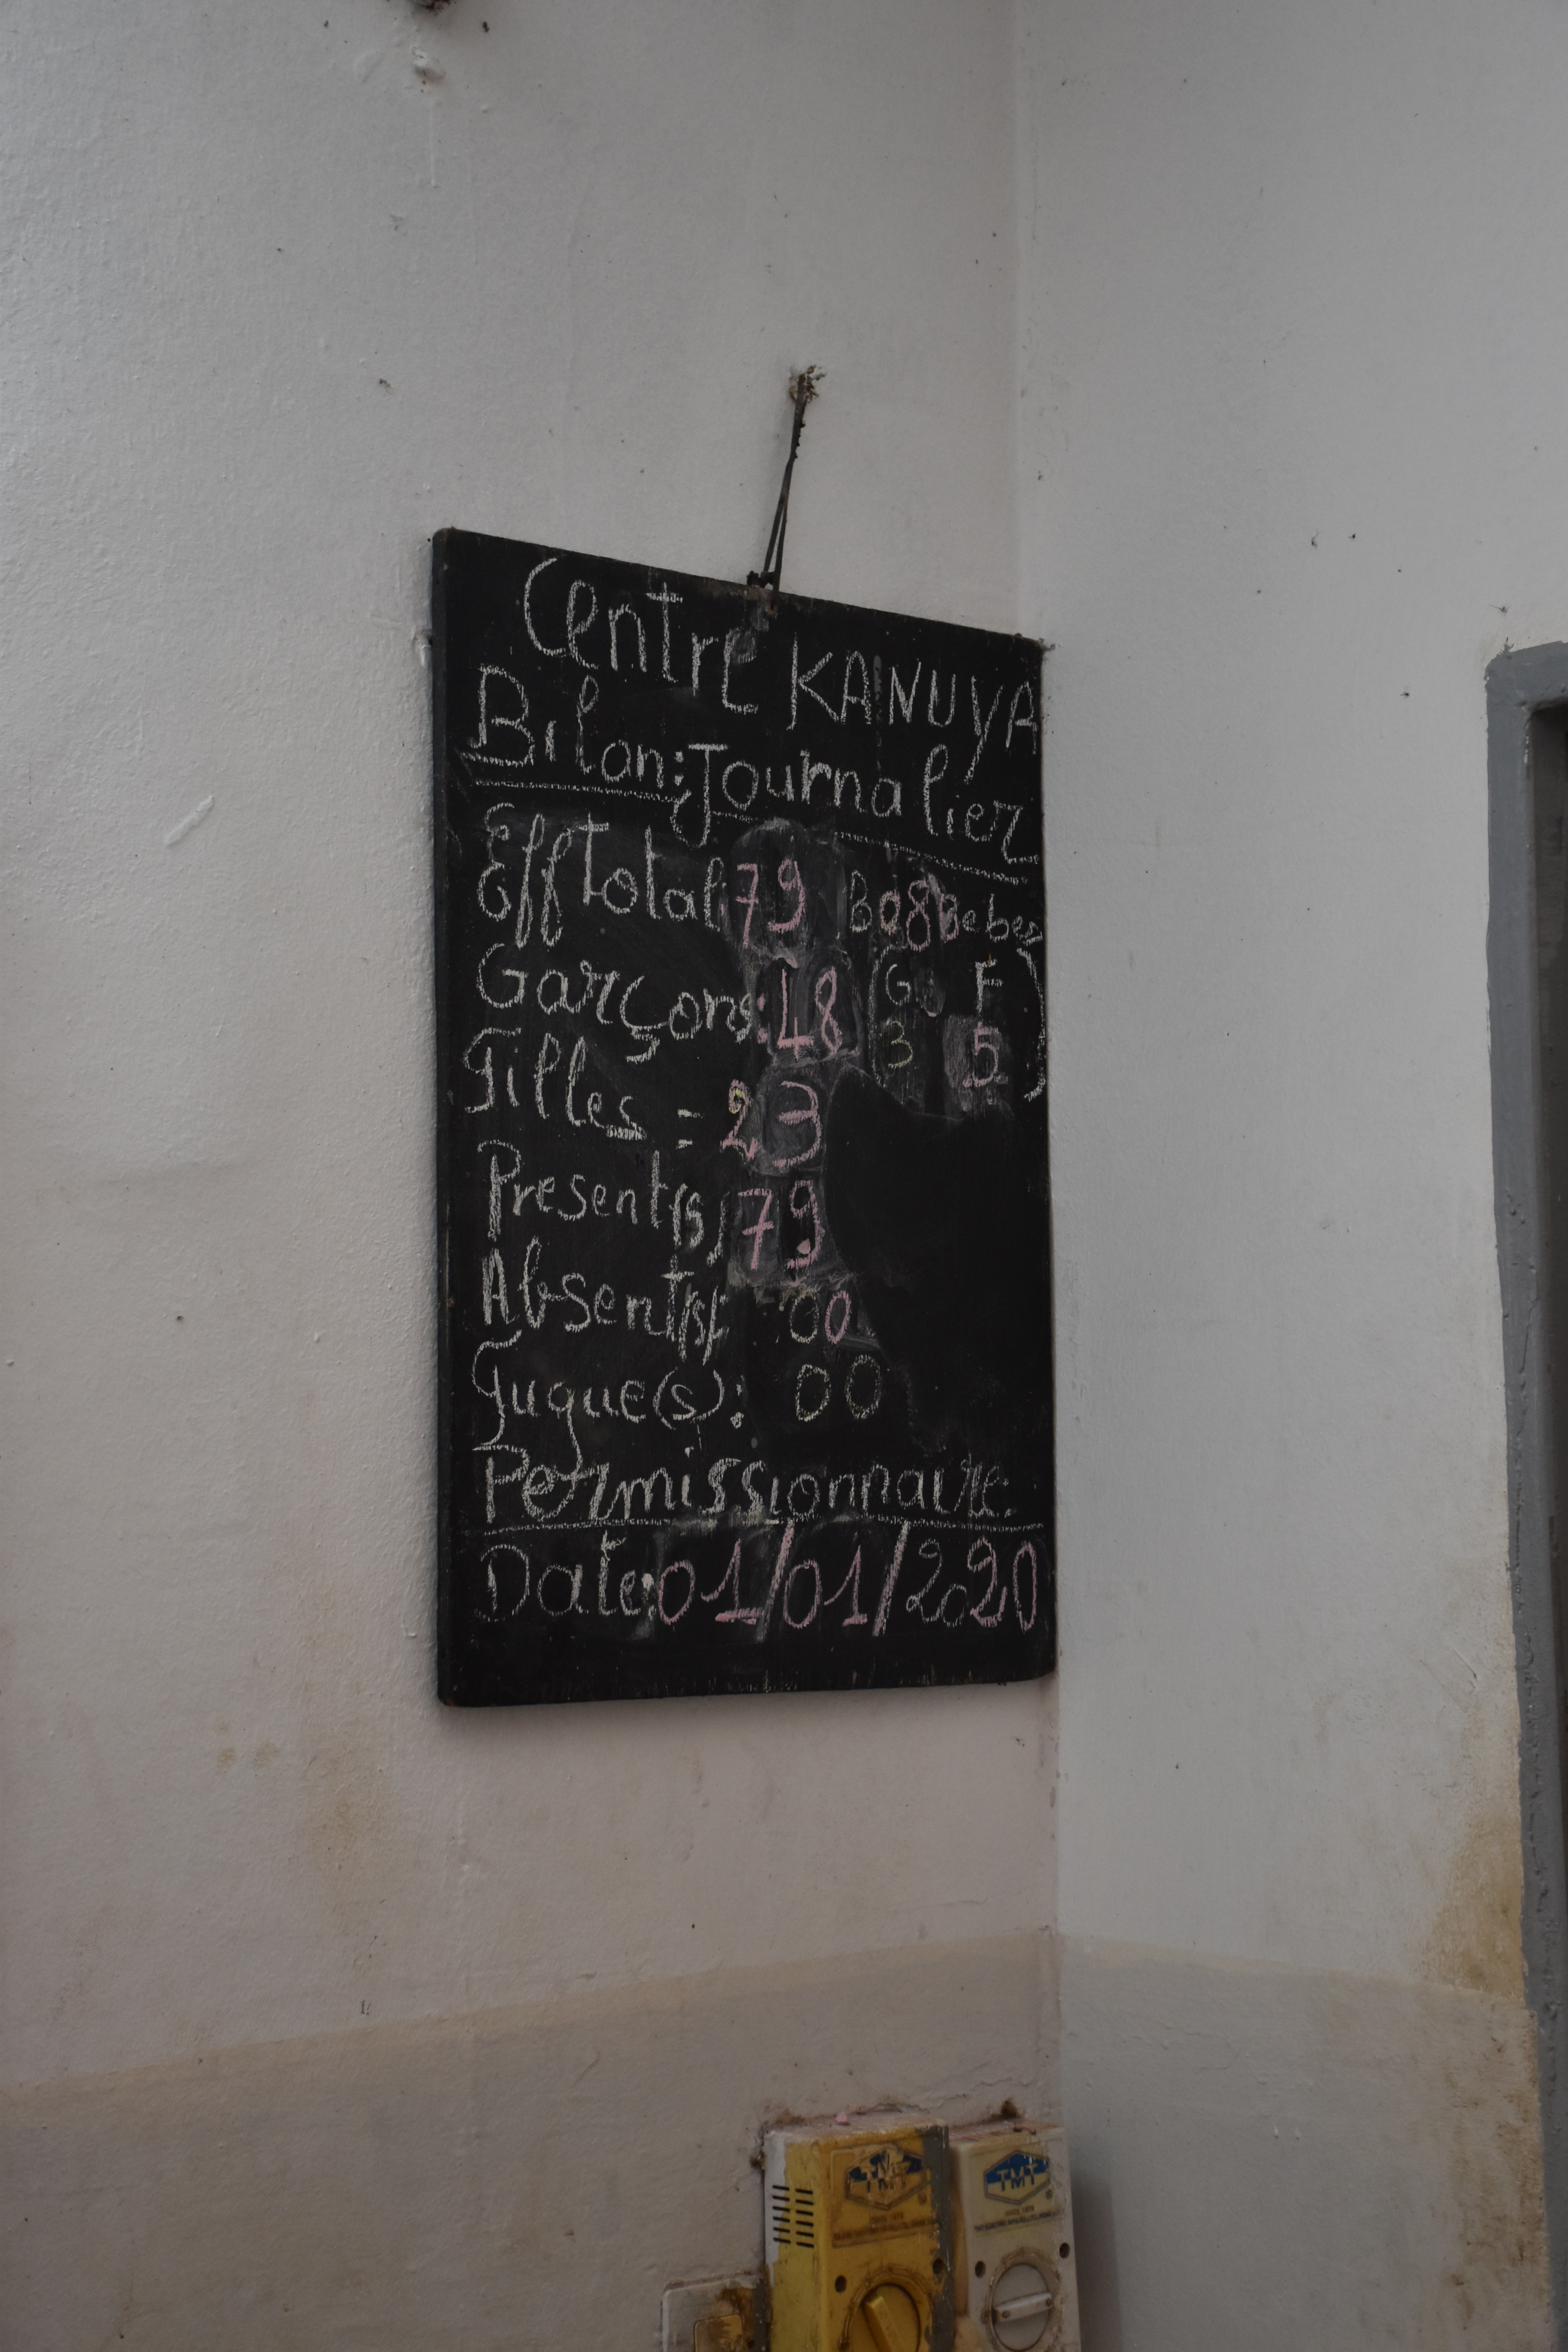 Centre KANUYA
Bilan: Journalier
Eff total: 79 B 08 Bebes
Garçons: 48 (G F)
Filles = 23 3 5
Present(s) 79
Absent(s): 00
Fugue(s): 00
Permissionnaire:
Date: 01/01/2020
TMT
TMT